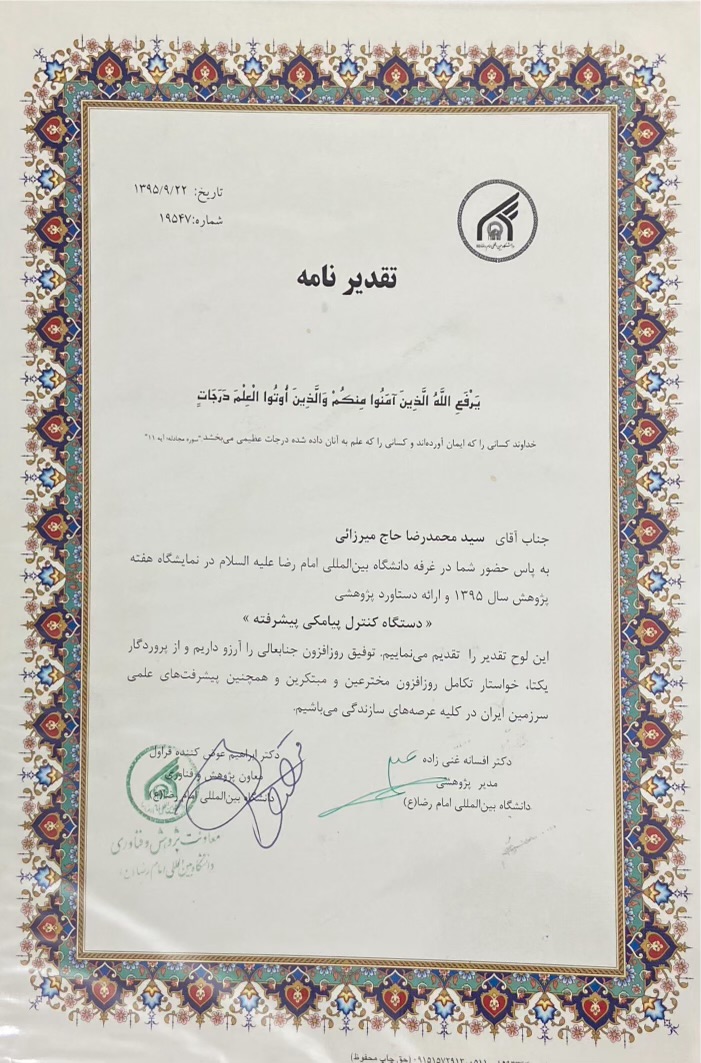 تاریخ: ۱۳۹۵/۹/۲۲
شماره:۱۹۵۴۷
تقدیر نامه
يَرْفَعِ اللَّهُ الَّذِينَ آمَنُوا مِنكُمْ وَالَّذِينَ أُوتُوا الْعِلْمَ دَرَجَاتٍ
خداوند کسانی را که ایمان آورده‌اند و کسانی را که علم به آنان داده شده درجات عظیمی می‌بخشد "سوره مجادله: آیه ۱۱"
جناب آقای سید محمدرضا حاج میرزائی
به پاس حضور شما در غرفه دانشگاه بین‌المللی امام رضا علیه السلام در نمایشگاه هفته
پژوهش سال ۱۳۹۵ و ارائه دستاورد پژوهشی
« دستگاه کنترل پیامکی پیشرفته »
این لوح تقدیر را تقدیم می‌نماییم. توفیق روزافزون جنابعالی را آرزو داریم و از پروردگار
یکتا، خواستار تکامل روزافزون مخترعین و مبتکرین و همچنین پیشرفت‌های علمی
سرزمین ایران در کلیه عرصه‌های سازندگی می‌باشیم.
دکتر افسانه غنی زاده
مدیر پژوهشی
دانشگاه بین‌المللی امام رضا(ع)
دکتر ابراهیم عوض کننده قراول
معاون پژوهش و فناوری
دانشگاه بین‌المللی امام رضا(ع)
معاونت پژوهش و فناوری
دانشگاه بین‌المللی امام رضا (ع)
(حق چاپ محفوظ)